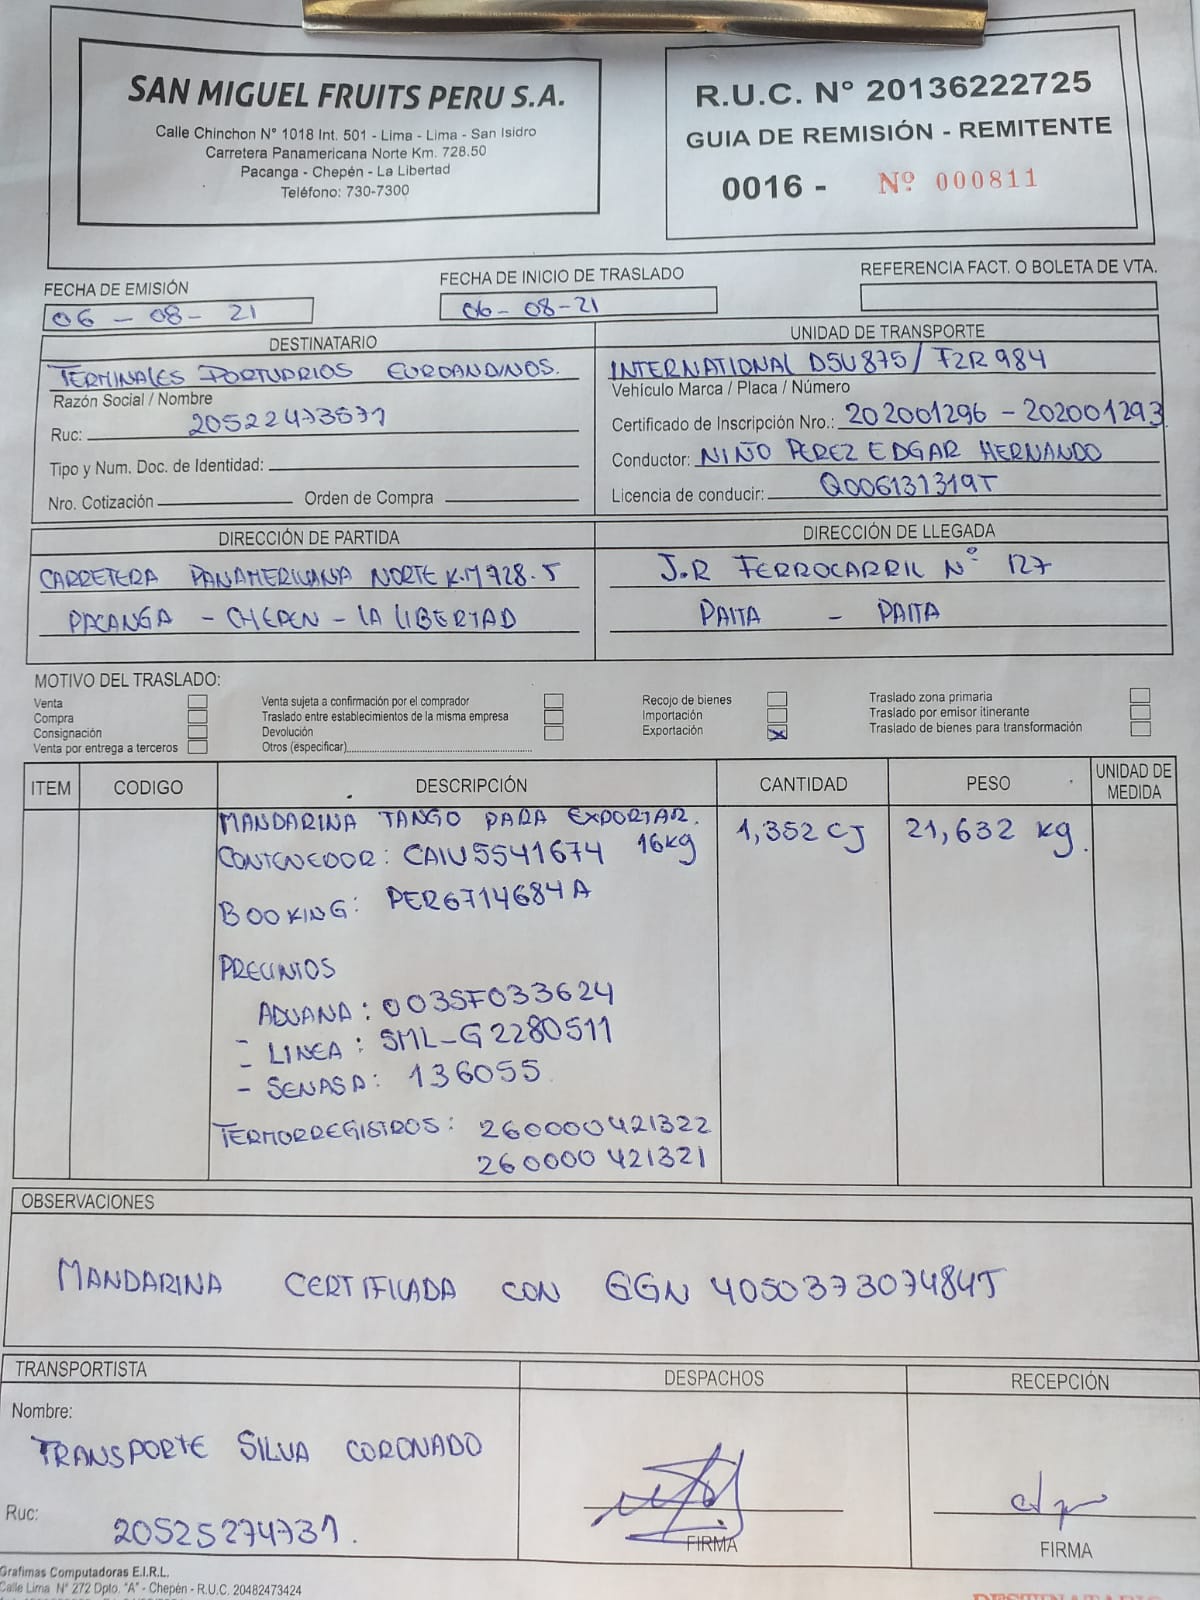 SAN MIGUEL FRUITS PERU S.A.
Calle Chinchon N° 1018 Int. 501 - Lima - Lima - San Isidro
Carretera Panamericana Norte Km. 728.50
Pacanga - Chepén - La Libertad
Teléfono: 730-7300
R.U.C. N° 20136222725
GUIA DE REMISIÓN - REMITENTE
0016 - Nº 000811
FECHA DE EMISIÓN
06 - 08 - 21
FECHA DE INICIO DE TRASLADO
06 - 08 - 21
REFERENCIA FACT. O BOLETA DE VTA.
DESTINATARIO
TERMINALES PORTUARIOS EUROANDINOS.
Razón Social / Nombre
Ruc: 20522473571
Tipo y Num. Doc. de Identidad:
Nro. Cotización Orden de Compra
UNIDAD DE TRANSPORTE
INTERNATIONAL D5U875 / F2R984
Vehículo Marca / Placa / Número
Certificado de Inscripción Nro.: 202001296 - 202001293
Conductor: NIÑO PEREZ EDGAR HERNANDO
Licencia de conducir:
DIRECCIÓN DE PARTIDA
CARRETERA PANAMERICANA NORTE K.M 728.5
PACANGA - CHEPEN - LA LIBERTAD
DIRECCIÓN DE LLEGADA
J.R FERROCARRIL N° 127
PAITA - PAITA
MOTIVO DEL TRASLADO:
Venta
Compra
Consignación
Venta por entrega a terceros
Venta sujeta a confirmación por el comprador
Traslado entre establecimientos de la misma empresa
Devolución
Otros (especificar)
Recojo de bienes
Importación
Exportación X
Traslado zona primaria
Traslado por emisor itinerante
Traslado de bienes para transformación
ITEM CODIGO DESCRIPCIÓN CANTIDAD PESO UNIDAD DE MEDIDA
MANDARINA TANGO PARA EXPORTAR. 1,352 CJ 21,632 kg.
CONTENEDOR: CAIU5541674 16kg
BOOKING: PER6714684A
PRECINTOS
ADUANA: 003SF033624
- LINEA: SML-G2280511
- SENASA: 136055
TERMORREGISTROS: 260000421322
260000421321
OBSERVACIONES
MANDARINA CERTIFICADA CON GGN 4050373074845
TRANSPORTISTA
Nombre:
TRANSPORTE SILVA CORONADO
Ruc:
20525274731.
DESPACHOS
FIRMA
RECEPCIÓN
FIRMA
Grafimas Computadoras E.I.R.L.
Calle Lima N° 272 Dpto. "A" - Chepén - R.U.C. 20482473424